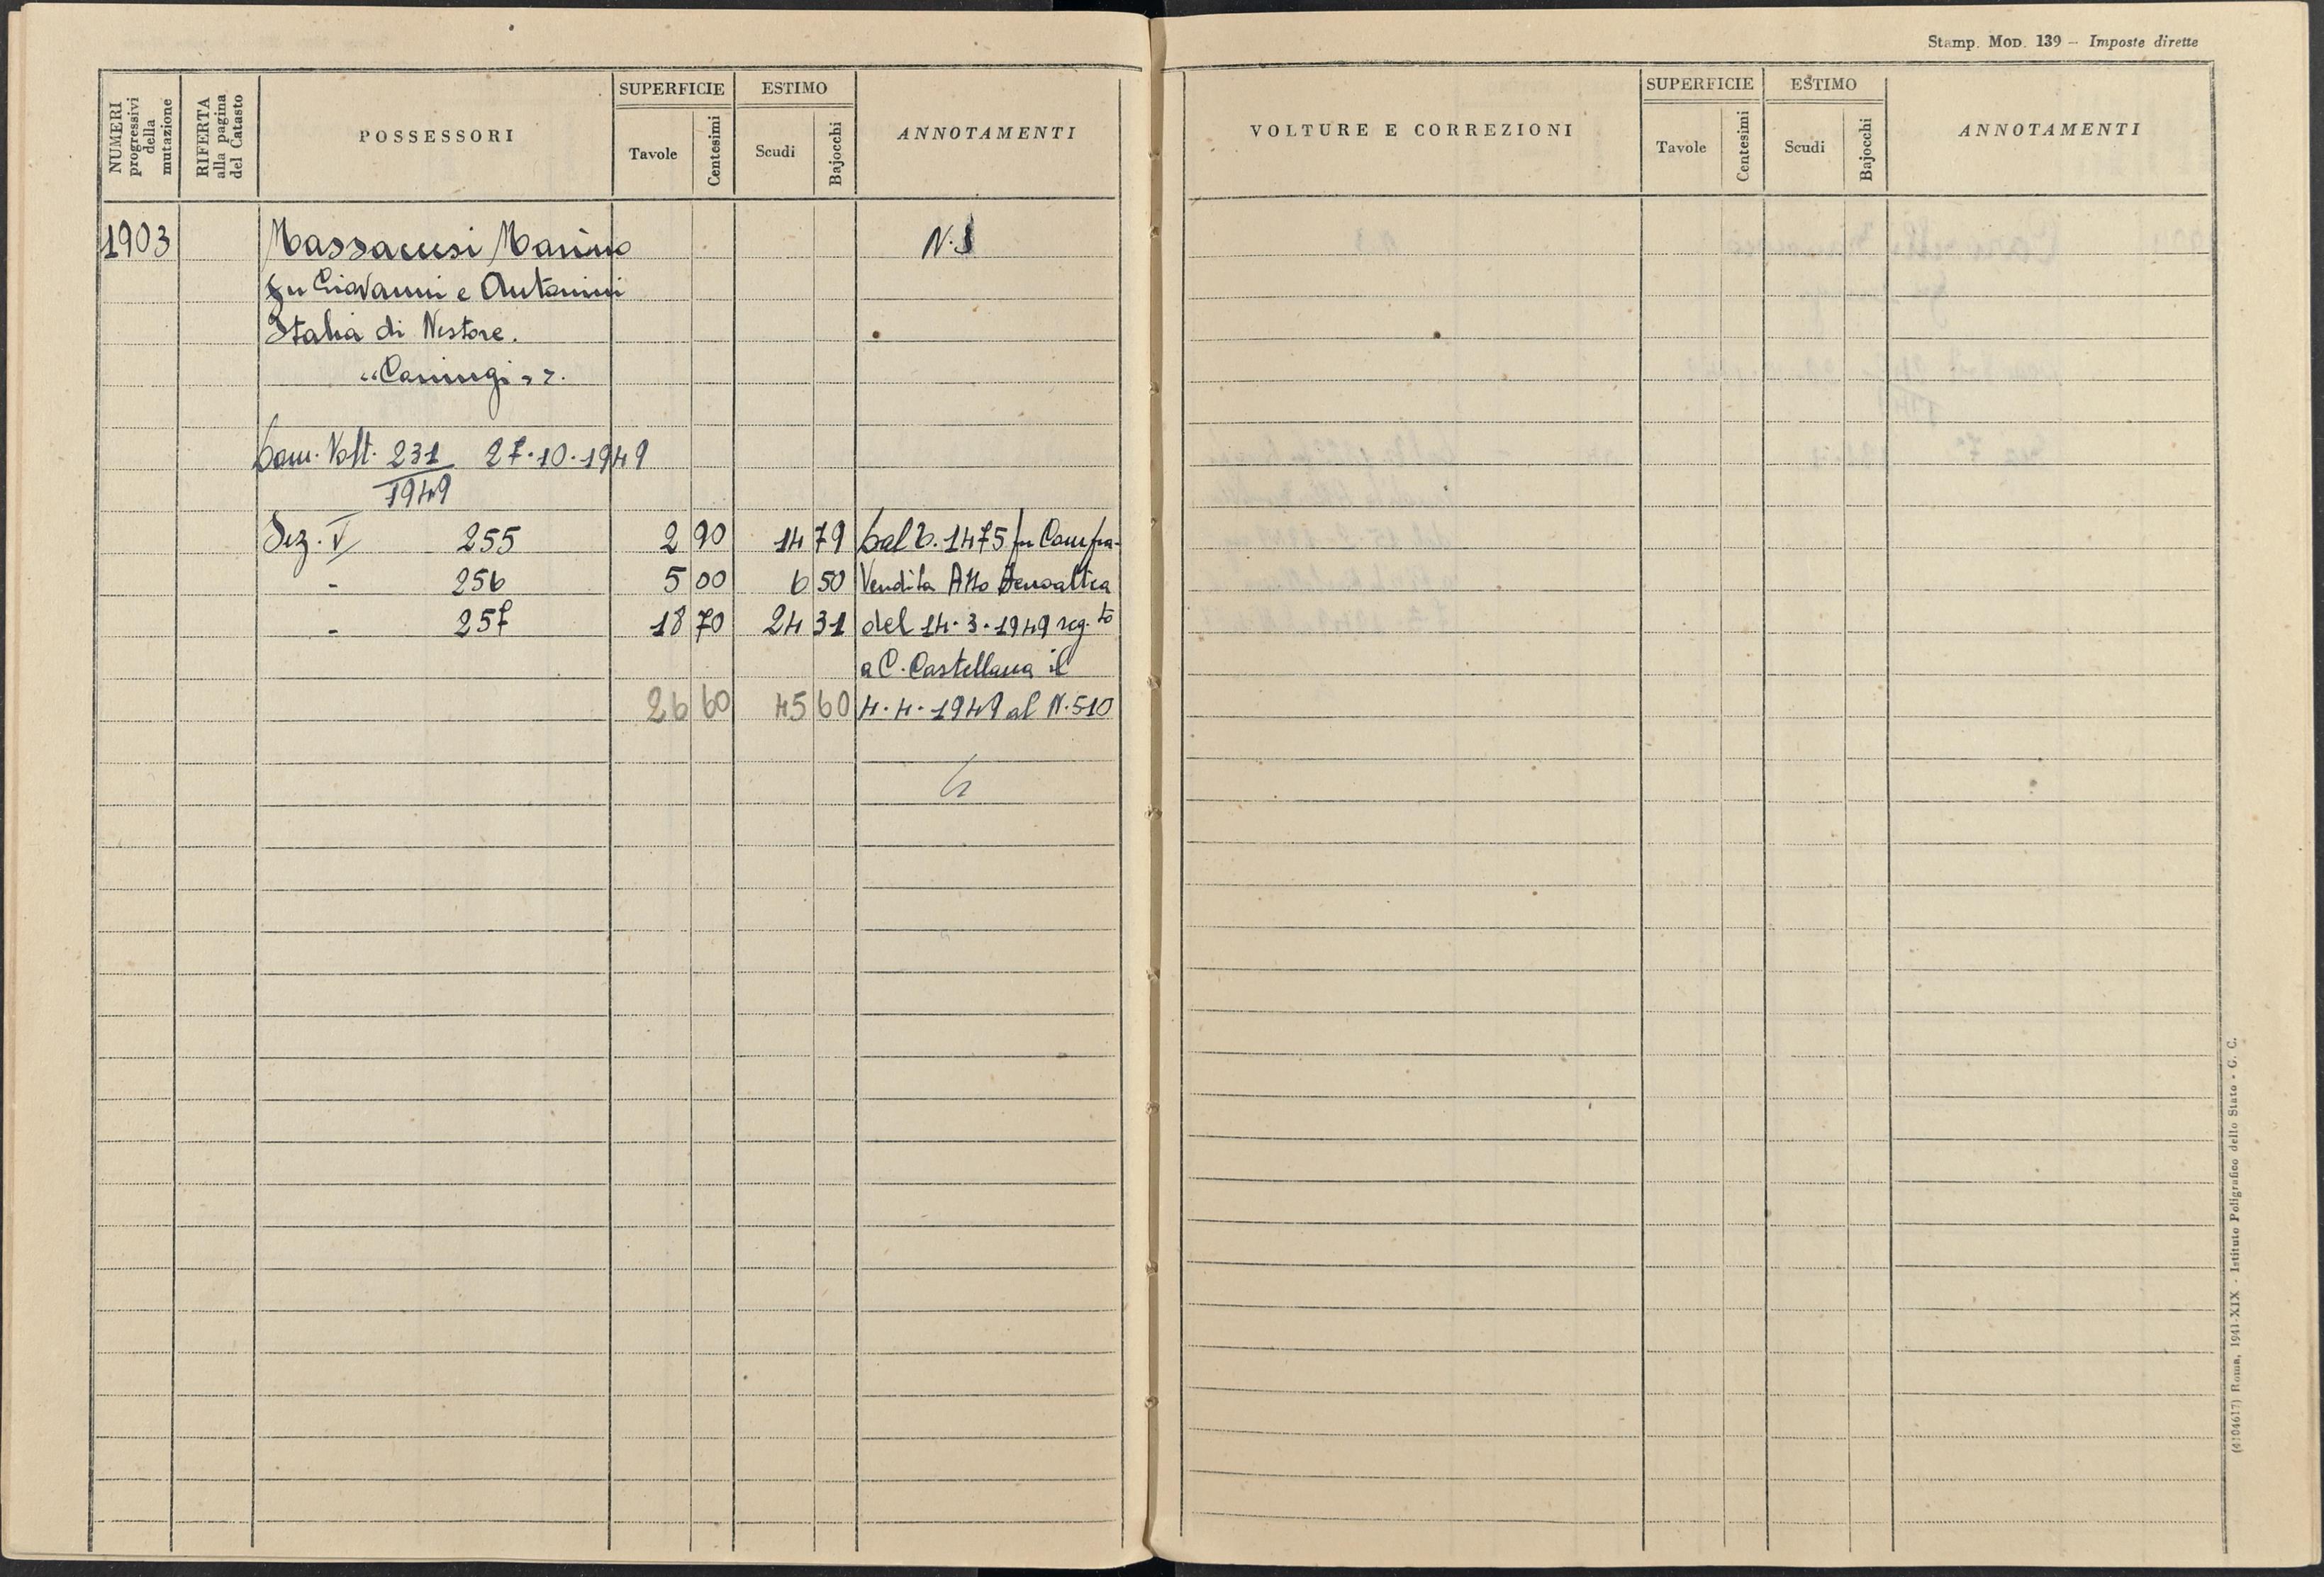 Stamp. Mod. 139 – Imposte dirette
NUMERI progressivi della mutazione
RIFERTA alla pagina del Catasto
POSSESSORI
SUPERFICIE
Tavole
Centesimi
ESTIMO
Scudi
Bajocchi
ANNOTAMENTI
VOLTURE E CORREZIONI
SUPERFICIE
Tavole
Centesimi
ESTIMO
Scudi
Bajocchi
ANNOTAMENTI
1903 Massacesi Marino N.
fu Giovanni e Antonini
Italia di Nestore.
"Coniugi"
Volt. 231/1949 27.10.1949
Sez. V 255 2 90 14 79 1475 Compra-
- 256 5 00 6 50 Vendita Atto
- 257 18 70 24 31 del 14.3.1949 reg.to
a C. Castellana il
26 60 45 60 4.4.1949 al N.510
(4104617) Roma, 1941-XIX - Istituto Poligrafico dello Stato - G. C.